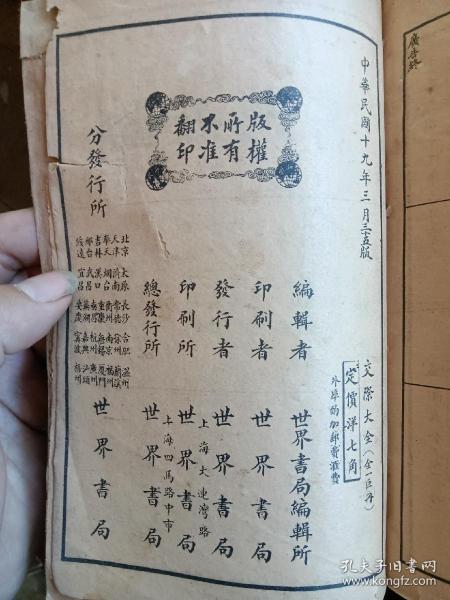 廣告終
中華民國十九年三月三五版
交際大全（全一巨冊）
定價洋七角
外埠酌加郵費滙費
版權
所有
不准
翻印
編輯者 世界書局編輯所
印刷者 世界書局
發行者 世界書局
上海大連灣路
印刷所 世界書局
上海四馬路中市
總發行所 世界書局
分發行所
北京 太原 長沙 合肥 溫州
天津 濟南 常德 徐州 蘭溪
奉天 烟台 衡州 南京 福州
吉林 漢口 重慶 無錫 廈門
邢台 武昌 南昌 杭州 廣州
綏遠 宜昌 安慶 寧波 梧州
世界書局
孔夫子旧书网
www.kongfz.com